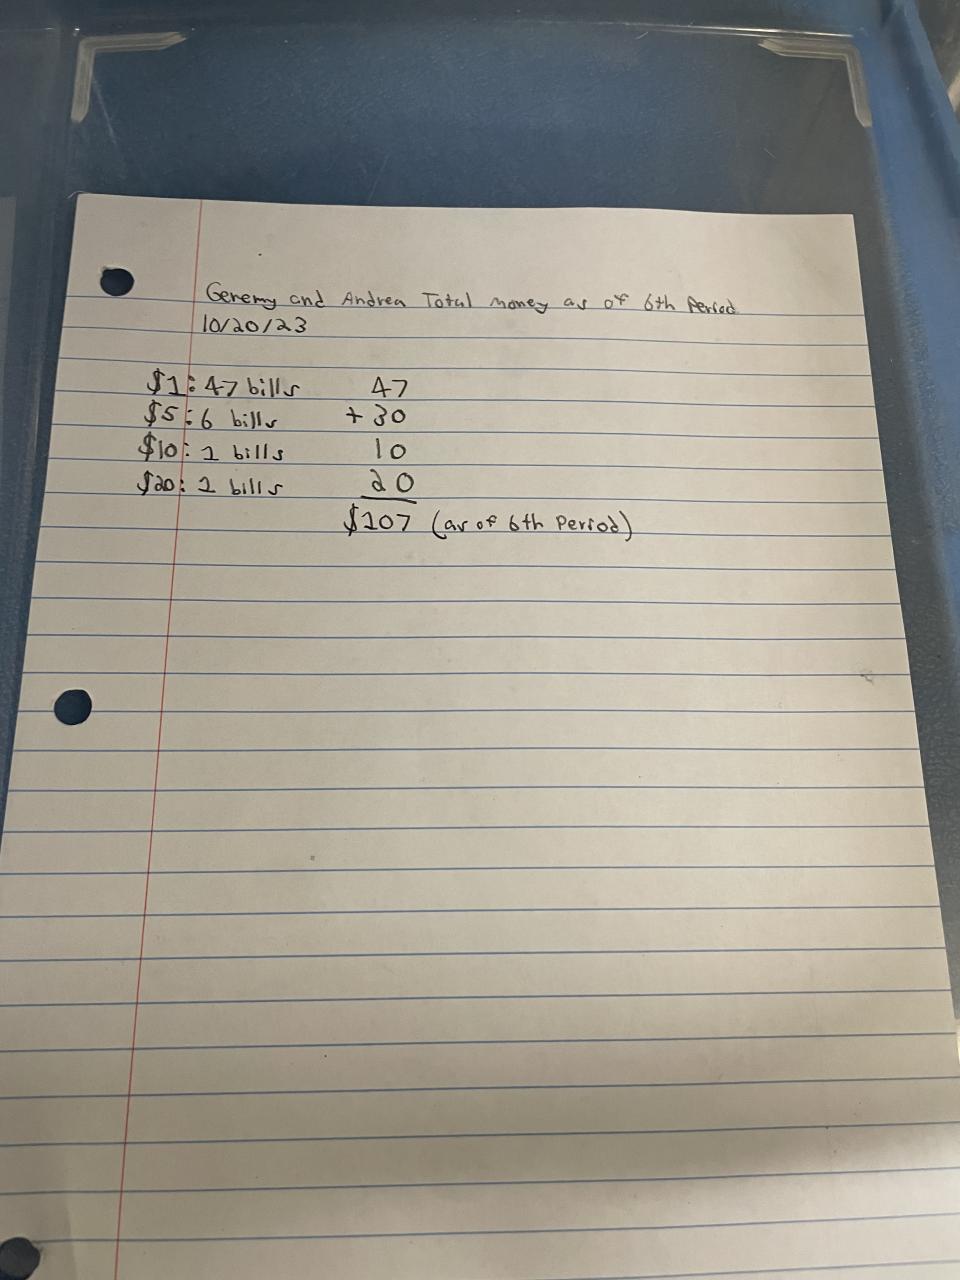 Geremy and Andrea Total money as of 6th Period
10/20/23
$1: 47 bills 47
$5: 6 bills + 30
$10: 1 bills 10
$20: 1 bills 20
$107 (as of 6th Period)